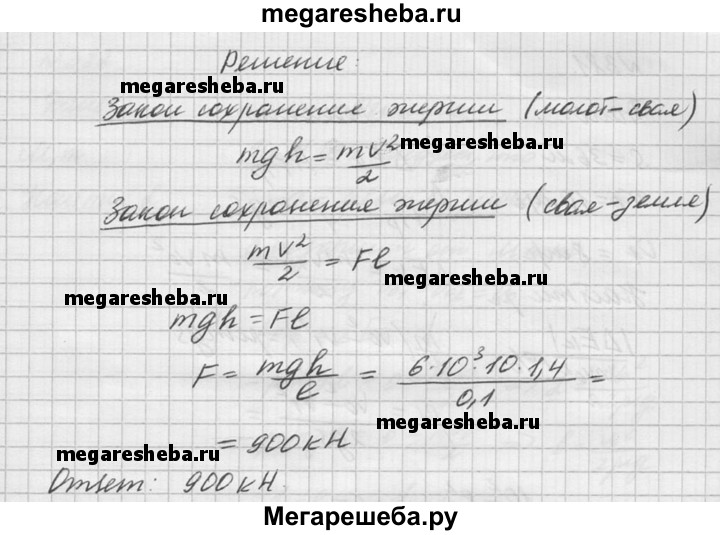 megaresheba.ru
Решение:
megaresheba.ru
Закон сохранение энергии (молот-свая)
mgh = mv²/2 megaresheba.ru
Закон сохранения энергии (свая-земля)
mv²/2 = Fl
megaresheba.ru
megaresheba.ru
mgh = Fl
F = mgh/l = 6·10³·10·1,4/0,1 =
megaresheba.ru
= 900кН
megaresheba.ru
Ответ: 900кН.
Мегарешеба.ру